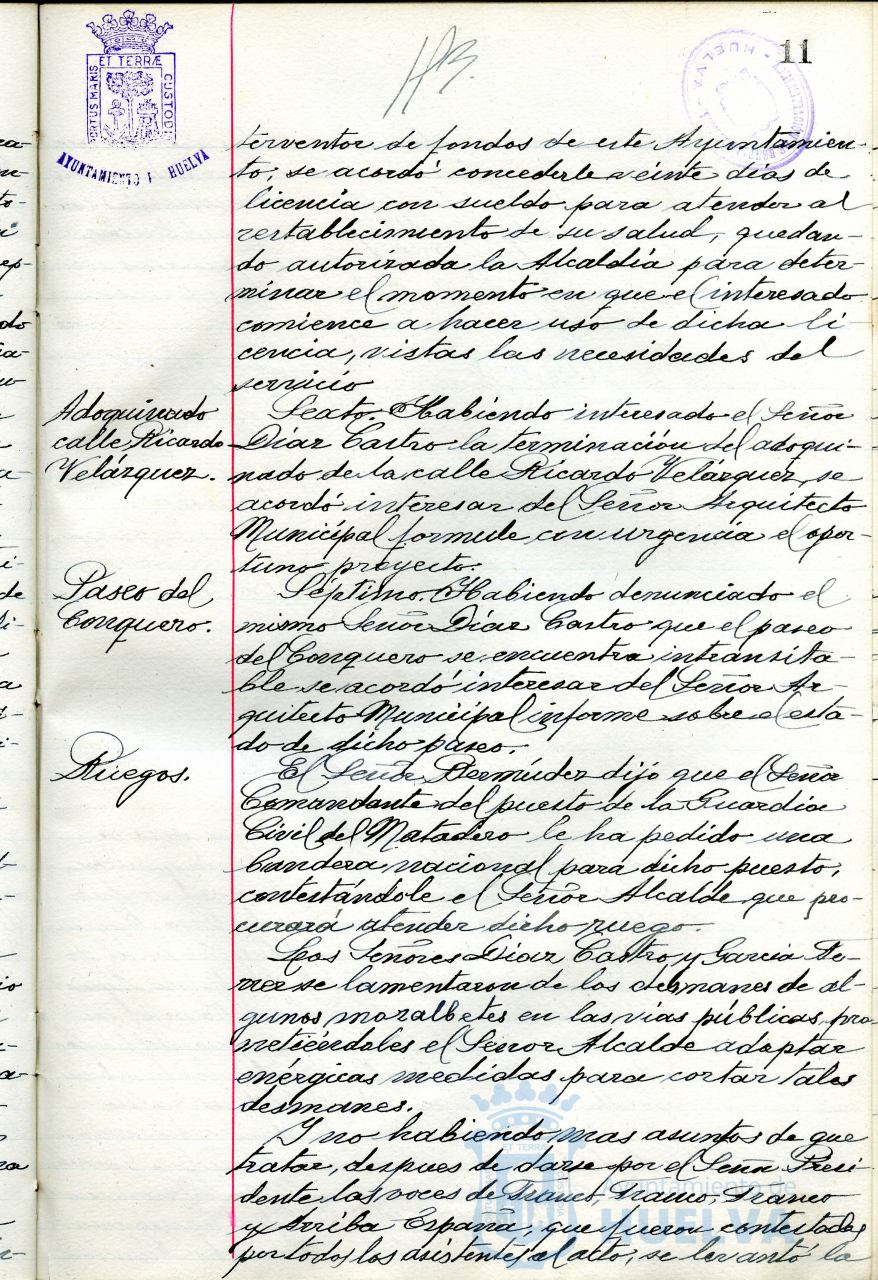 11
ET TERRÆ
PORTUS MARIS
CUSTODIA
AYUNTAMIENTO HUELVA
HUELVA
terventor de fondos de este Ayuntamien-
to; se acordó concederle veinte días de
licencia con sueldo para atender al
restablecimiento de su salud, quedan-
do autorizada la Alcaldía para deter-
minar el momento en que el interesado
comience a hacer uso de dicha li-
cencia, vistas las necesidades del
servicio
Adoquinado
calle Ricardo
Velázquez.
Sexto. Habiendo interesado el Señor
Díaz Castro la terminación del adoqui-
nado de la calle Ricardo Velázquez, se
acordó interesar del Señor Arquitecto
Municipal formule con urgencia el opor-
tuno proyecto.
Paseo del
Conquero.
Séptimo. Habiendo denunciado el
mismo Señor Díaz Castro que el paseo
del Conquero se encuentra intransita-
ble se acordó interesar del Señor Ar-
quitecto Municipal informe sobre el esta-
do de dicho paseo.
Ruegos.
El Señor Bermúdez dijo que el Señor
Comandante del puesto de la Guardia
Civil del Matadero le ha pedido una
bandera nacional para dicho puesto,
contestándole el Señor Alcalde que pro-
curará atender dicho ruego.
Los Señores Díaz Castro y Garcia Fe-
rrer se lamentaron de los desmanes de al-
gunos mozalbetes en las vías públicas, pro-
metiéndoles el Señor Alcalde adoptar
enérgicas medidas para cortar tales
desmanes.
Y no habiendo mas asuntos de que
tratar, despues de darse por el Señor Presi-
dente las voces de Franco, Franco, Franco
y Arriba España, que fueron contestadas
por todos los asistentes al acto, se levantó la
Ayuntamiento de
HUELVA